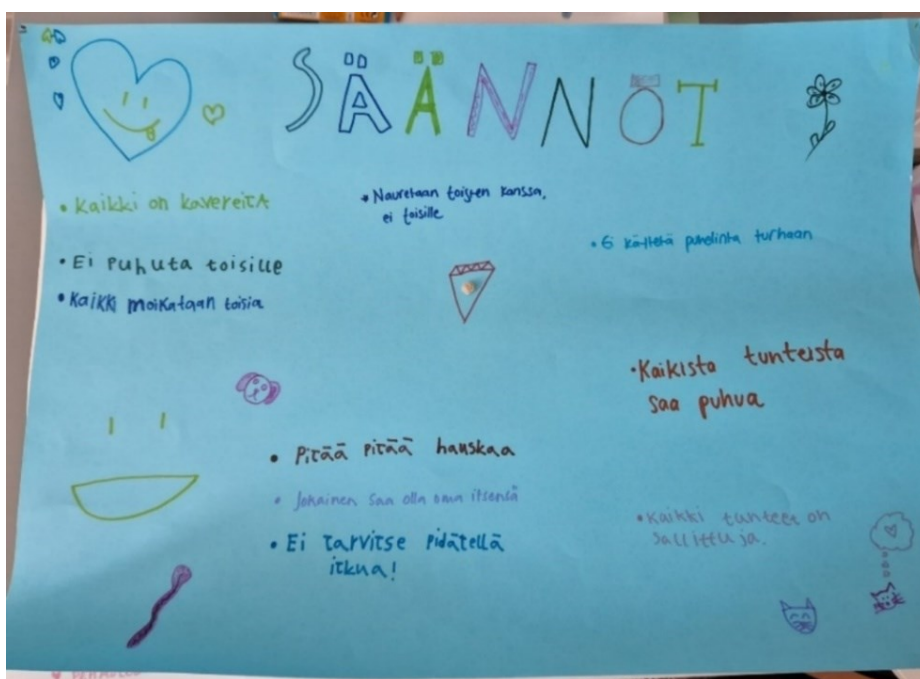 SÄÄNNÖT
• Kaikki on kavereita
• Ei puhuta toisille
• Kaikki moikataan toisia
• Nauretaan toisten kanssa,
ei toisille
• Ei käytetä puhelinta turhaan
• Kaikista tunteista
saa puhua
• Pitää pitää hauskaa
• Jokainen saa olla oma itsensä
• Ei tarvitse pidätellä
itkua!
• Kaikki tunteet on
sallittuja.